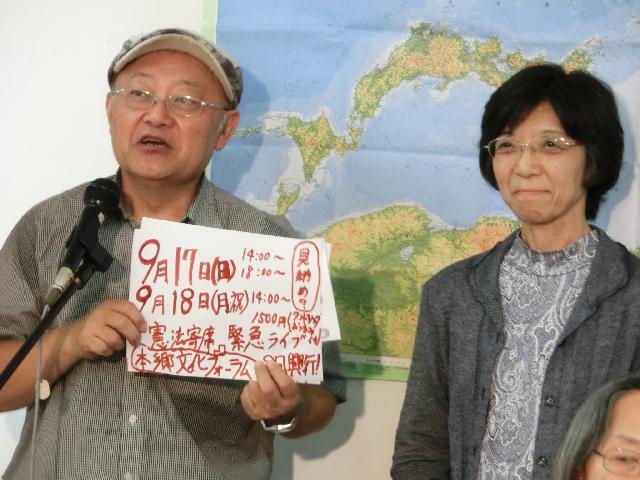 9月17日(日) 14:00~
18:00~
9月18日(月祝) 14:00~
1500円
見納め?
憲法寄席 緊急ライブ
本郷文化フォーラム 2日興行!